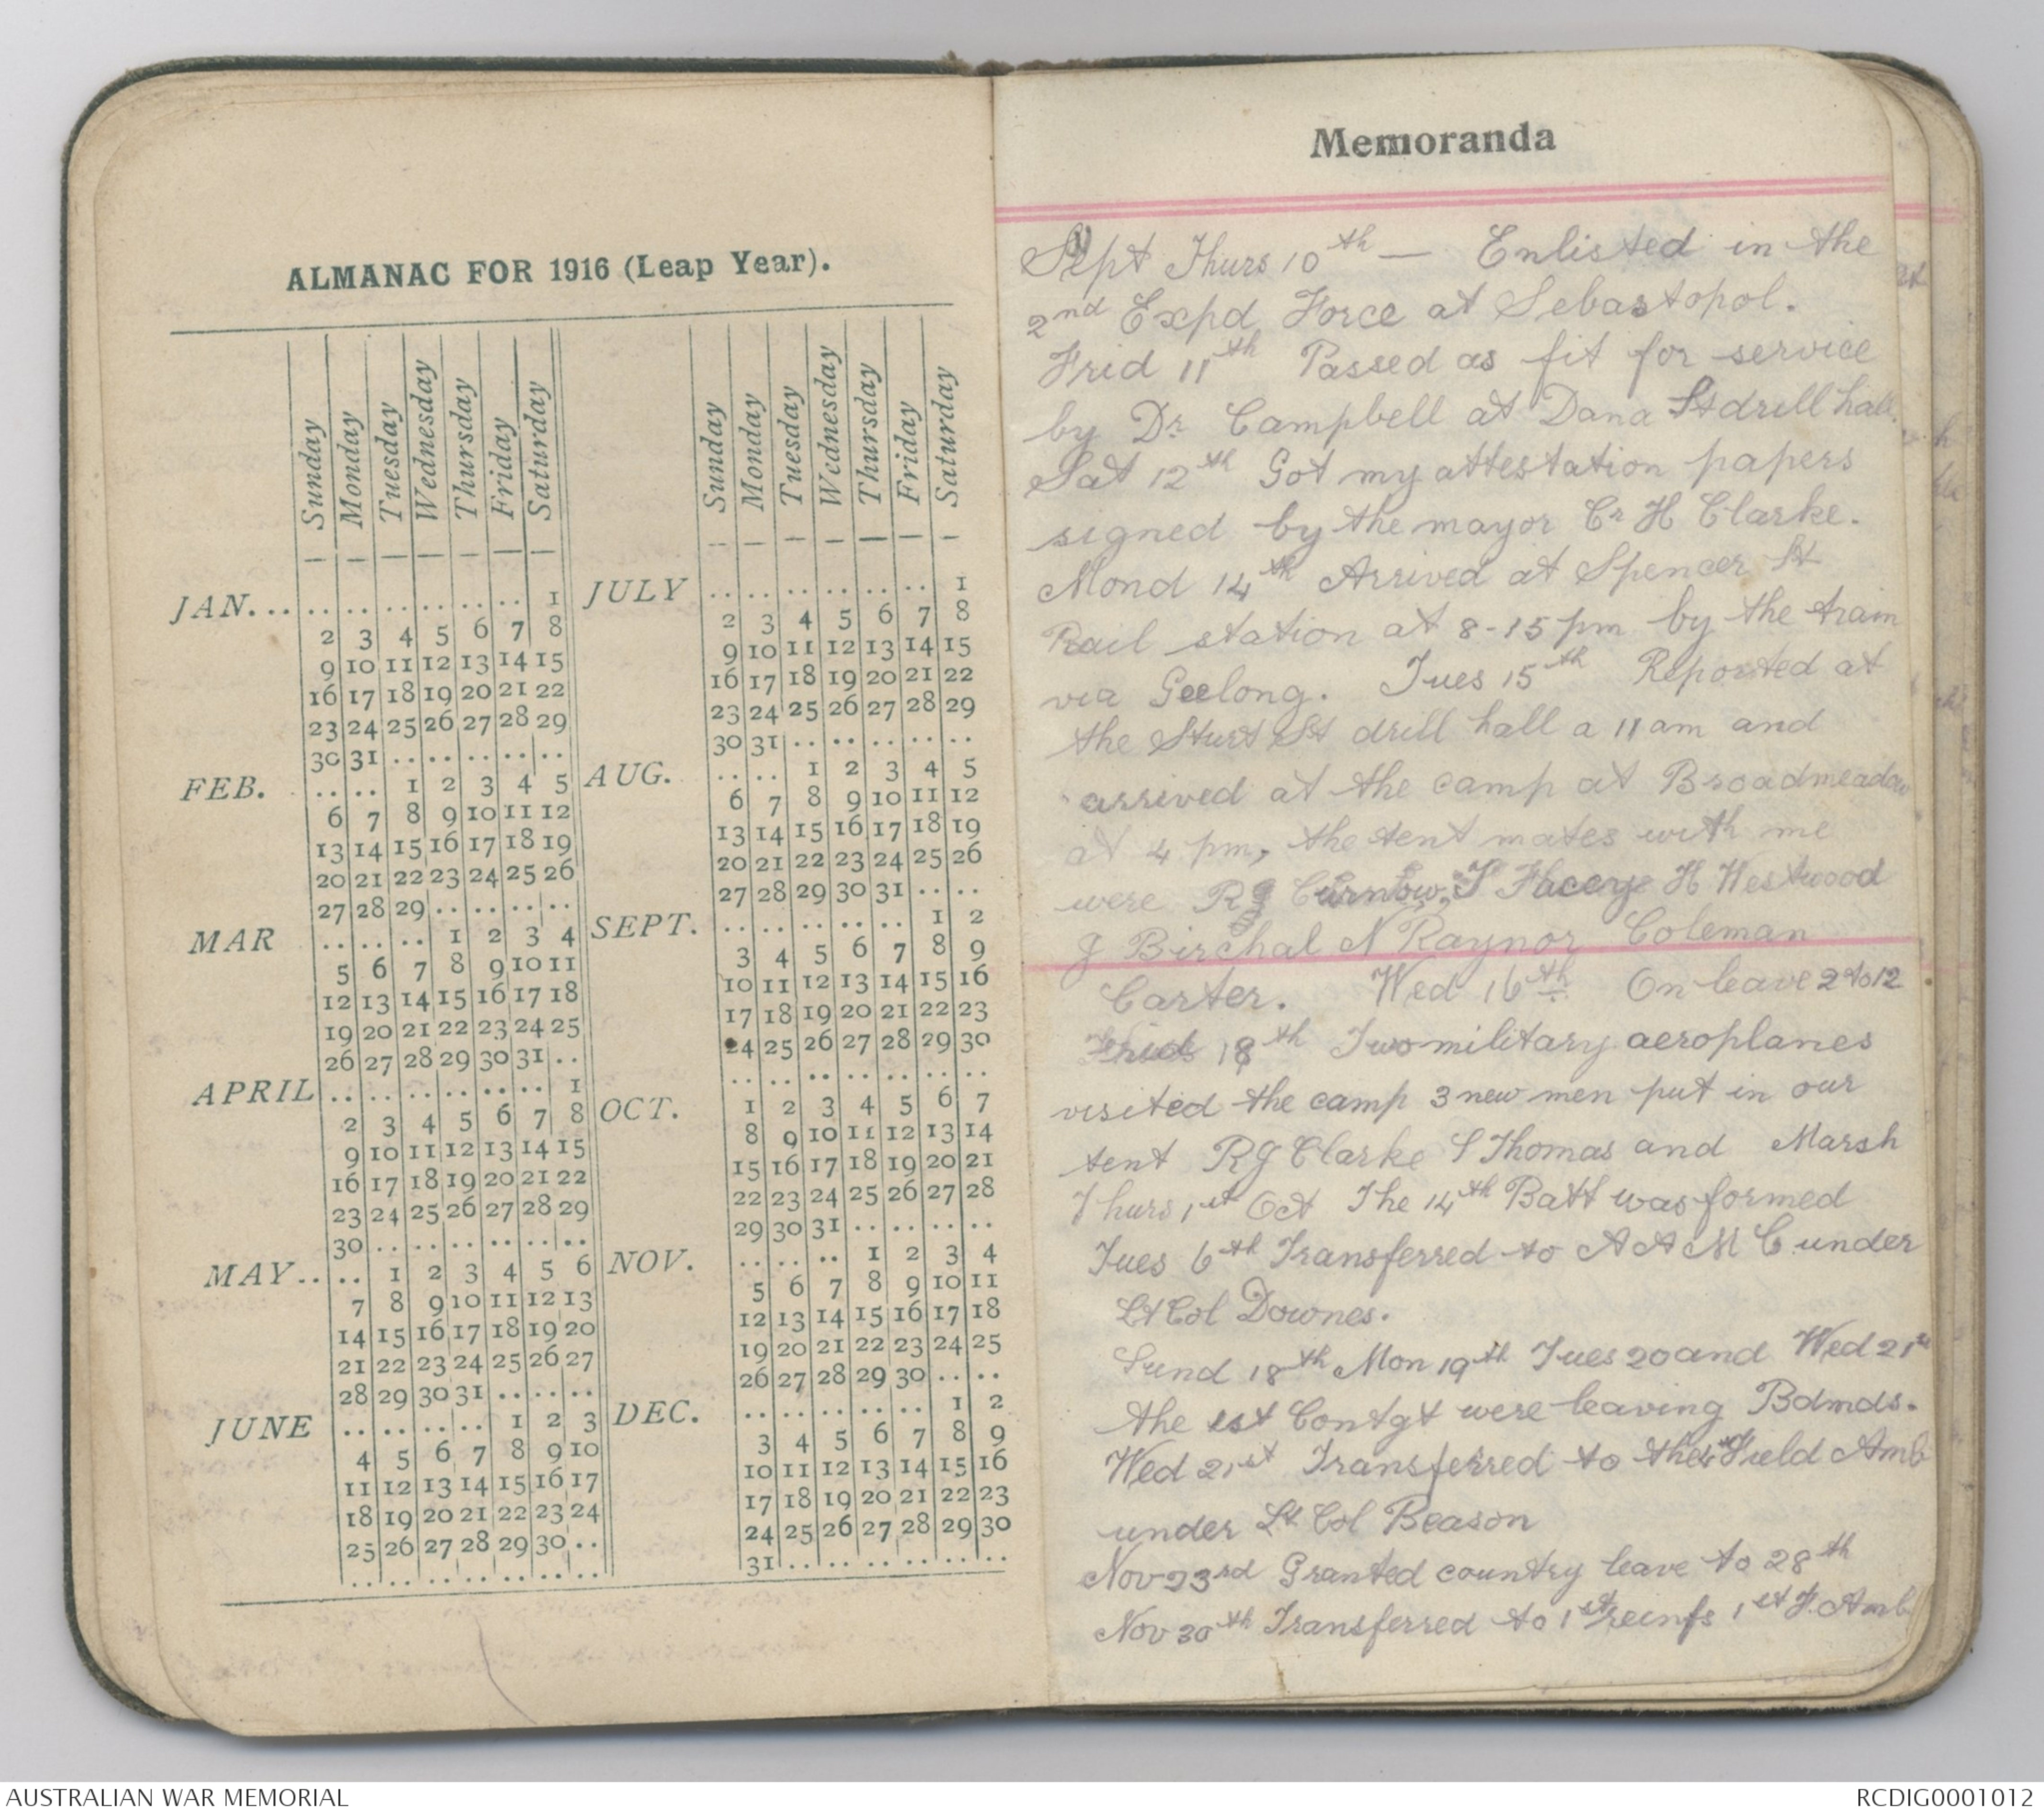 ALMANAC FOR 1916 (Leap Year).
Sunday Monday Tuesday Wednesday Thursday Friday Saturday
JAN... .. .. .. .. .. .. 1
2 3 4 5 6 7 8
9 10 11 12 13 14 15
16 17 18 19 20 21 22
23 24 25 26 27 28 29
30 31 .. .. .. .. ..
FEB. .. .. 1 2 3 4 5
6 7 8 9 10 11 12
13 14 15 16 17 18 19
20 21 22 23 24 25 26
27 28 29 .. .. .. ..
MAR .. .. .. 1 2 3 4
5 6 7 8 9 10 11
12 13 14 15 16 17 18
19 20 21 22 23 24 25
26 27 28 29 30 31 ..
APRIL .. .. .. .. .. .. 1
2 3 4 5 6 7 8
9 10 11 12 13 14 15
16 17 18 19 20 21 22
23 24 25 26 27 28 29
30 .. .. .. .. .. ..
MAY.. .. 1 2 3 4 5 6
7 8 9 10 11 12 13
14 15 16 17 18 19 20
21 22 23 24 25 26 27
28 29 30 31 .. .. ..
JUNE .. .. .. .. 1 2 3
4 5 6 7 8 9 10
11 12 13 14 15 16 17
18 19 20 21 22 23 24
25 26 27 28 29 30 ..
.. .. .. .. .. .. ..
Sunday Monday Tuesday Wednesday Thursday Friday Saturday
JULY .. .. .. .. .. .. 1
2 3 4 5 6 7 8
9 10 11 12 13 14 15
16 17 18 19 20 21 22
23 24 25 26 27 28 29
30 31 .. .. .. .. ..
AUG. .. .. 1 2 3 4 5
6 7 8 9 10 11 12
13 14 15 16 17 18 19
20 21 22 23 24 25 26
27 28 29 30 31 .. ..
SEPT. .. .. .. .. .. 1 2
3 4 5 6 7 8 9
10 11 12 13 14 15 16
17 18 19 20 21 22 23
24 25 26 27 28 29 30
.. .. .. .. .. .. ..
OCT. 1 2 3 4 5 6 7
8 9 10 11 12 13 14
15 16 17 18 19 20 21
22 23 24 25 26 27 28
29 30 31 .. .. .. ..
NOV. .. .. .. 1 2 3 4
5 6 7 8 9 10 11
12 13 14 15 16 17 18
19 20 21 22 23 24 25
26 27 28 29 30 .. ..
DEC. .. .. .. .. .. 1 2
3 4 5 6 7 8 9
10 11 12 13 14 15 16
17 18 19 20 21 22 23
24 25 26 27 28 29 30
31 .. .. .. .. .. ..
Memoranda
Sept Thurs 10th — Enlisted in the
2nd Expd Force at Sebastopol.
Frid 11th Passed as fit for service
by Dr Campbell at Dana St drill hall.
Sat 12th Got my attestation papers
signed by the mayor Cr H Clarke.
Mond 14th Arrived at Spencer St
Rail station at 8-15 pm by the train
via Geelong. Tues 15th Reported at
the Sturt St drill hall a 11 am and
arrived at the camp at Broadmeadow
at 4 pm, the tent mates with me
were RJ Curnow, T Facey H Westwood
J Birchal N Raynor Coleman
Carter. Wed 16th On leave 2 to 12
Frid 18th Two military aeroplanes
visited the camp 3 new men put in our
tent RJ Clarke S Thomas and Marsh
Thurs 1st Oct The 14th Batt was formed
Tues 6th Transferred to A A M C under
Lt Col Downes.
Sund 18th Mon 19th Tues 20 and Wed 21st
the 1st Contgt were leaving Bdmds.
Wed 21st Transferred to the 4th Field Amb
under Lt Col Beason
Nov 23rd Granted country leave to 28th
Nov 30th Transferred to 1st reinfs 1st F. Amb
AUSTRALIAN WAR MEMORIAL
RCDIG0001012